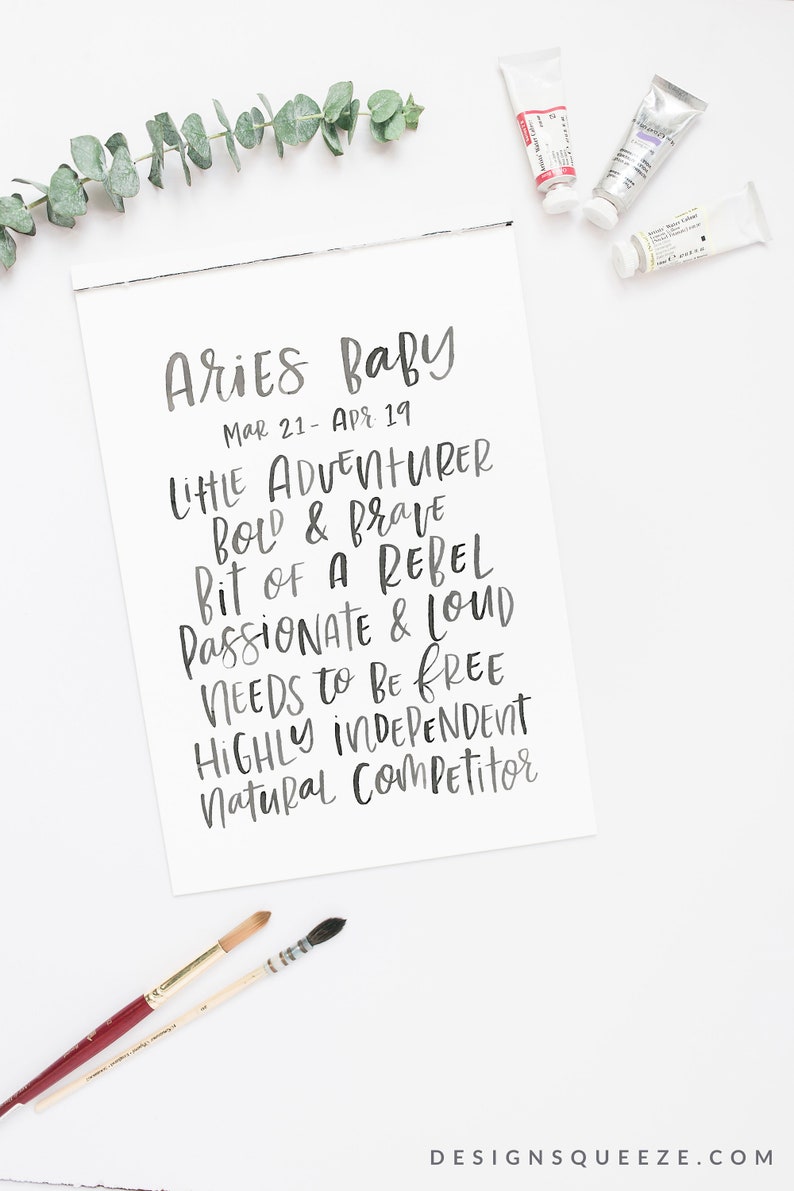 Artists' Water Colour
Artists' Water Colour
Aries Baby
Mar 21 - Apr. 19
Little Adventurer
Bold & Brave
Bit of a Rebel
Passionate & Loud
Needs to be free
Highly independent
Natural Competitor
DESIGNSQUEEZE.COM